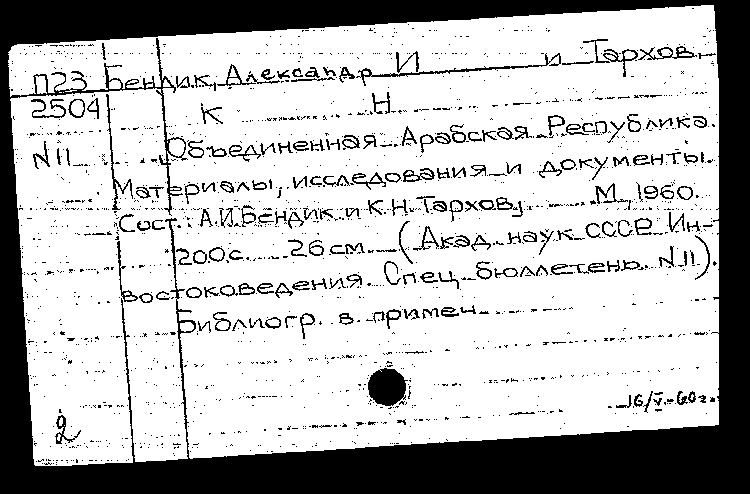 П23 Бендик, Александр И и Тархов,
2504 К Н
N11 Объединенная Арабская Республика.
Материалы, исследования и документы.
Сост. А.И.Бендик и К.Н.Тархов, М., 1960.
200с. 26см. (Акад. наук СССР. Ин-
востоковедения. Спец. бюллетень N11).
Библиогр. в примеч.
16/V-60г.
2